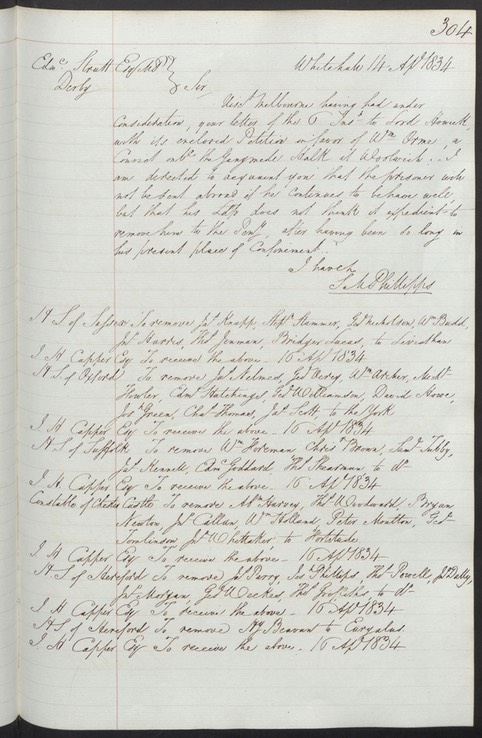 304
Edwd Strutt Esq MP } Whitehall 14 Apl 1834
Derby } Sir
Visct Melbourne having had under
Consideration, your letter of the 6 Inst to Lord Howick,
with its enclosed Petition in favor of Wm Orme, a
Convict on bd the Ganymede Hulk at Woolwich. I
am directed to acquaint you that the prisoner will
not be sent abroad if he continues to behave well,
but that his Ldp does not think it expedient to
remove him to the Peny, after having been so long in
his present place of Confinement.
I have &c
S M Phillipps
H S of Sussex To remove Jas Knapp, Stepn Hammer, Geo Nicholson, Wm Budd,
Jas Harris, Thos Jenman, Bridger Lucas, to Leviathan
J H Capper Esq To receive the above 16 Apl 1834
H S of Oxford To remove Jas Nelmes, Geo Wm Archer,
Fowler, Edwd Hutchings, Geo Williamson, David Howe,
Jos Green, Chas Thomas, Jas Scott to the York
J H Capper Esq To receive the above 16 Apl 1834
H S of Suffolk To remove Wm Foreman Chrisr Brown, Saml Tubby,
Jas Kennell, Edwd Goddard, Thos Shearman to Do
J H Capper Esq To receive the above. 16 Apl 1834
Constable of Chester Castle To remove Harvey, Thos Woodward Bryan
Newton, Jno Callan, Wm Holland Peter Moulton, Geo
Tomlinson Jno Whittaker to Fortitude
J H Capper Esq To receive the above 16 Apl 1834
H S of Hereford To remove Jas Parry, Jos Phillips, Thos Powell,
Jno Morgan, Geo Weekes, Thos to Do
J H Capper Esq To receive the above 16 Apl 1834
H S of Hereford To remove Hy Beavan to Euryalus.
J H Capper Esq To receive the above. 16 Apl 1834